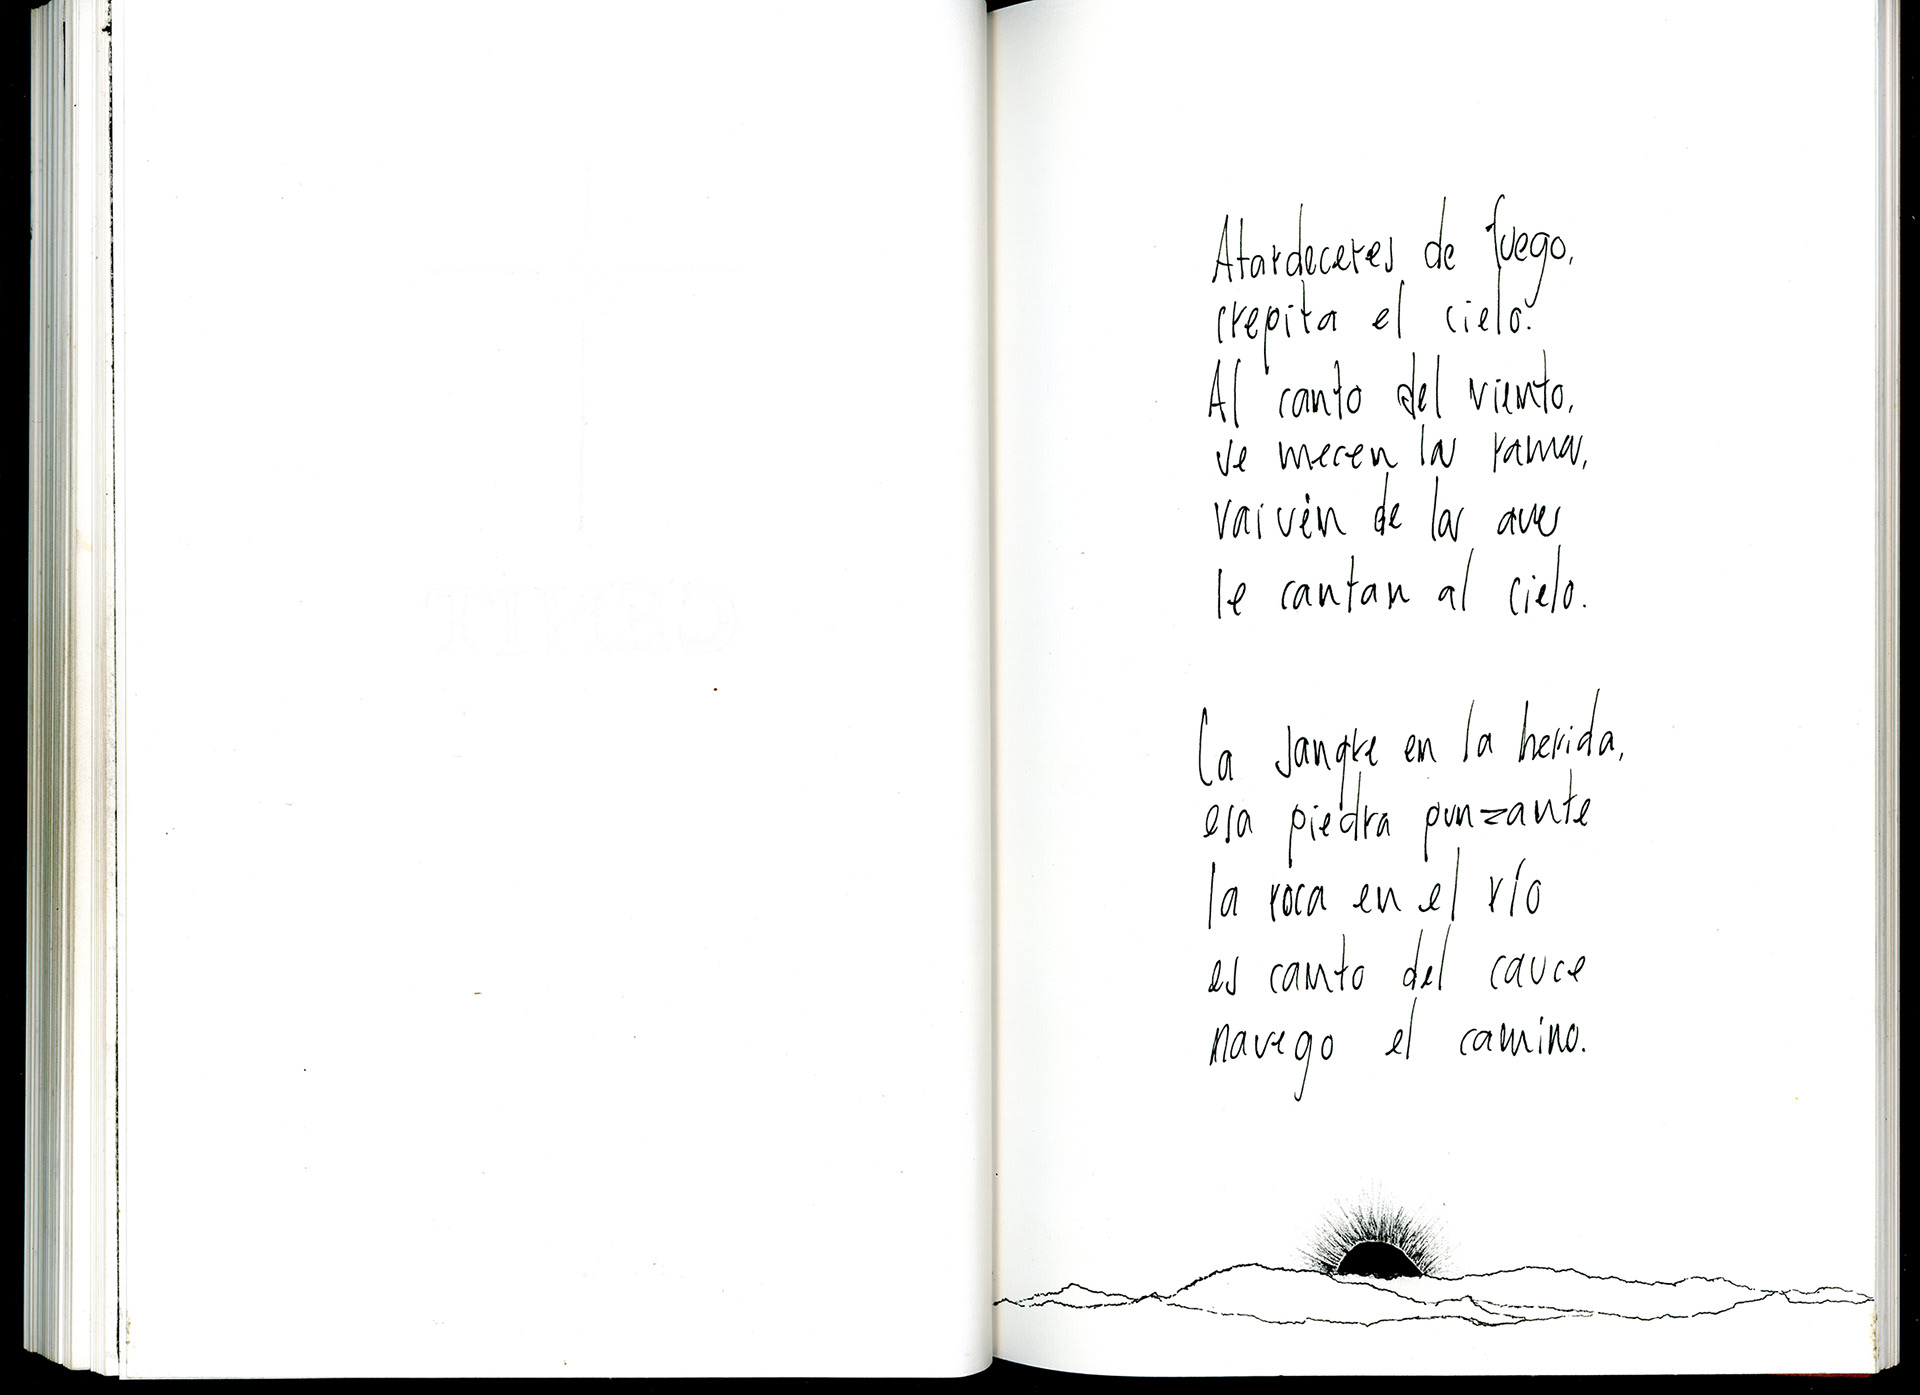 Atardeceres de fuego,
crepita el cielo.
Al canto del viento,
se mecen las ramas,
vaivén de las aves
le cantan al cielo.
La sangre en la herida,
esa piedra punzante
la roca en el río
es canto del cauce
navego el camino.